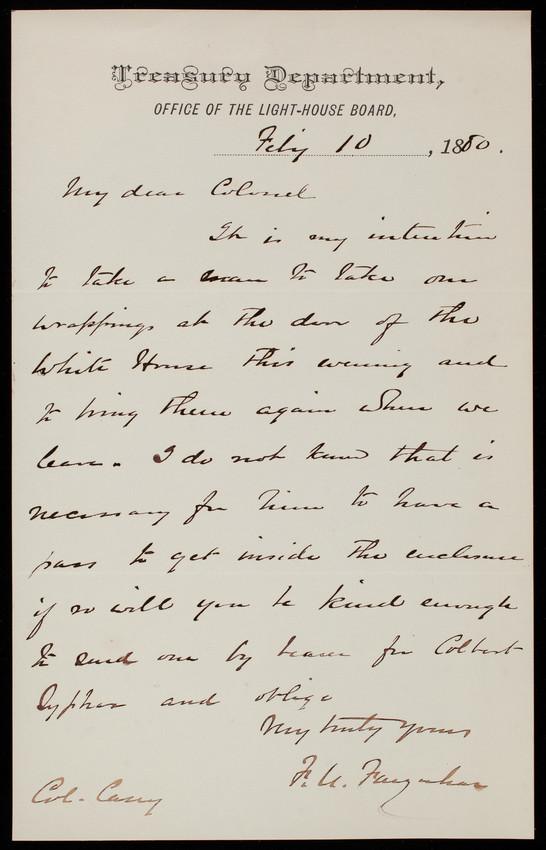 Treasury Department,
OFFICE OF THE LIGHT-HOUSE BOARD,
Feby 10, 1880.
My dear Colonel
It is my intention
to take a man to take our
wrappings at the door of the
White House this evening and
to bring them again when we
leave. I do not know that is
necessary for him to have a
pass to get inside the enclosure
if so will you be kind enough
to send one by bearer for Colbert
Syphax and oblige
Very truly yours
F. U. Farquhar
Col. Casey